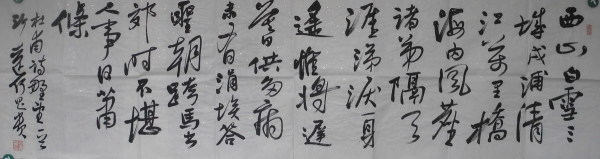 西山白雪三
城戍浦清
江萬里橋
海内風塵
諸弟隔天
涯涕淚身
遥惟將遲
暮供多病
未有涓埃答
聖朝跨馬出
郊時不堪
人事日蕭
條
杜甫詩野望一首